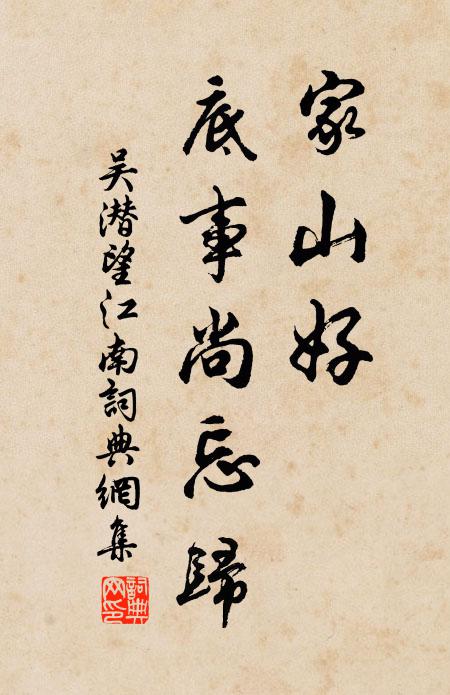 家山好
底事尚忘歸
吴潜望江南詞典網集
詞典网印